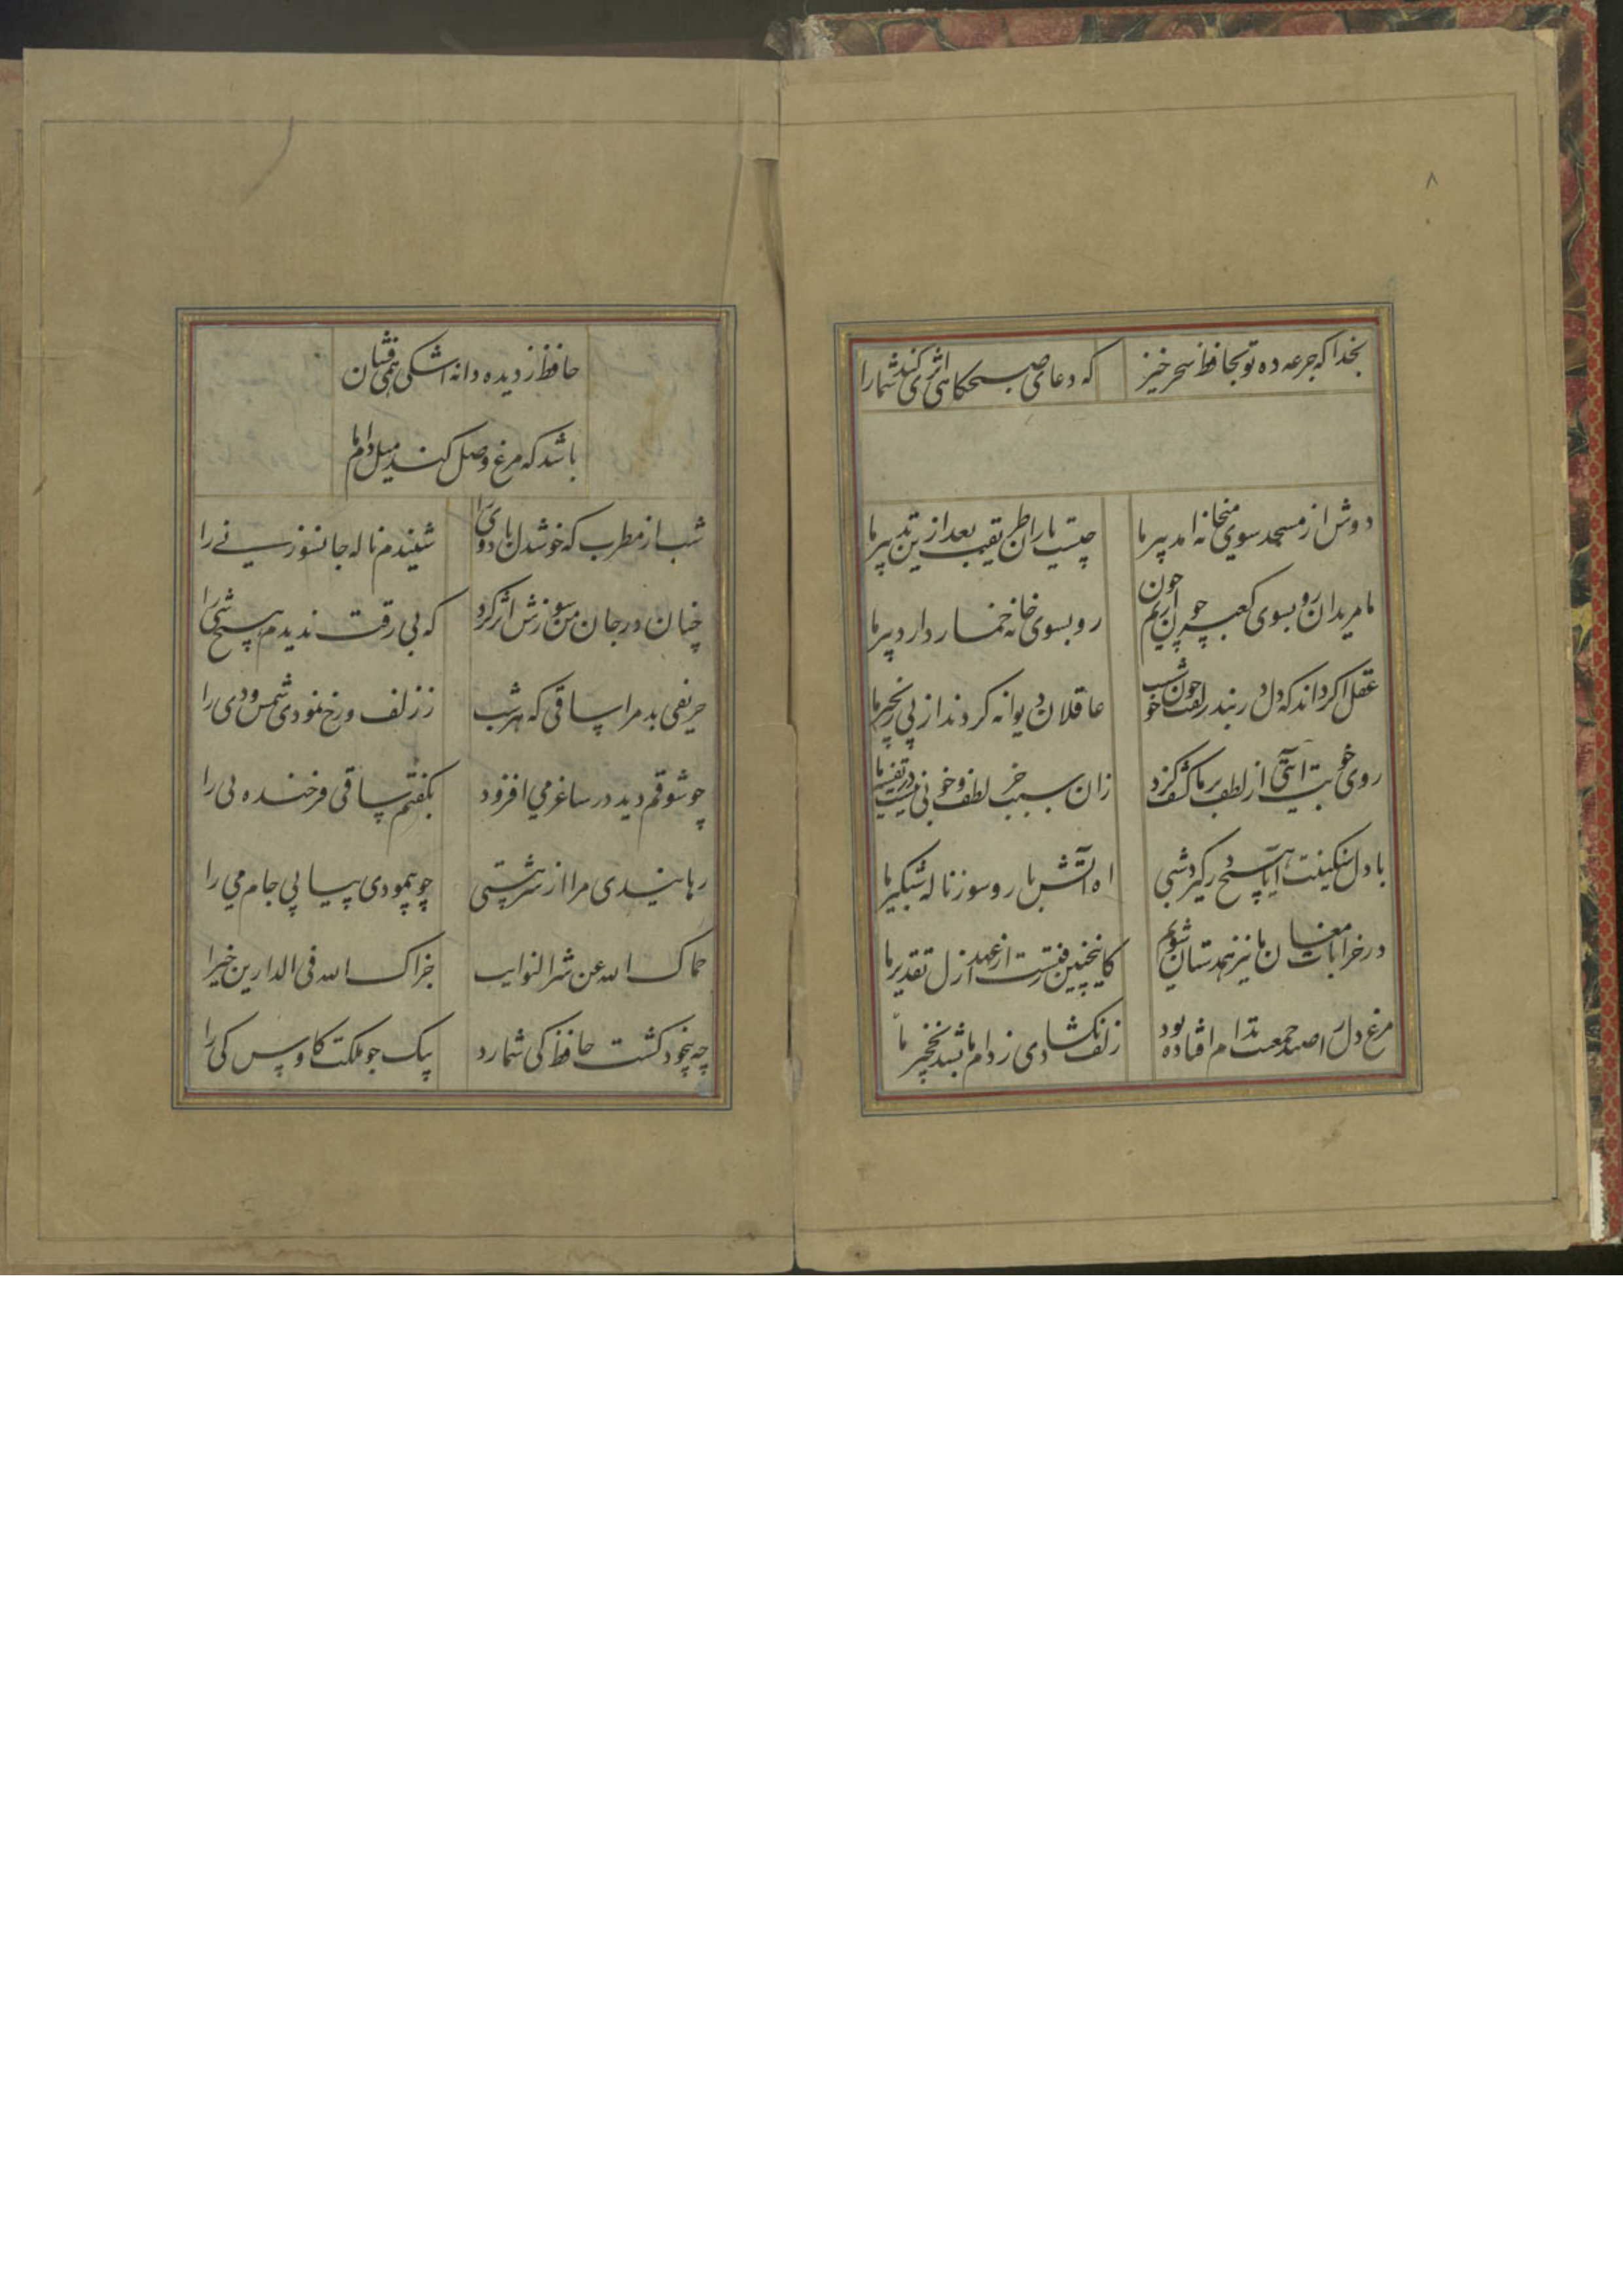 ۸
بخدا که جرعه ده تو بحافظ سحر خیز که دعای صبحکاهی اثری کند شما را
دوش از مسجد سوی میخانه امد پیر ما چیست یاران طریقت بعد ازین تدبیر ما
ما مریدان رو بسوی کعبه چون اریم چون رو بسوی خانه خمار دارد پیر ما
عقل اکر داند که دل در بند زلفت چون خوشست عاقلان دیوانه کردند از پی زنجیر ما
روی خوبت ایتی از لطف بر ما کشف کرد زان سبب جز لطف و خوبی نیست در تفسیر ما
با دل سنکینت ایا هیچ در کیرد شبی اه اتش بار و سوز ناله شبکیر ما
در خرابات مغان ما نیز همدستان شویم کاینچنین رفتست از عهد ازل تقدیر ما
مرغ دل را صید جمعیت بدام افتاده بود زلف بکشادی ز دام ما بشد نخجیر ما
حافظ ز دیده دانه اشکی همی فشان
باشد که مرغ وصل کند میل دام ما
شب از مطرب که دل خوش باد وی را شنیدم ناله جانسوز نی را
چنان در جان من سوزش اثر کرد که بی رقت ندیدم هیچ شی را
حریفی بد مرا ساقی که هر شب ز زلف و رخ نمودی شمس و دی را
چو شوقم دید در ساغر می افزود بکفتم ساقی فرخنده پی را
رهانیدی مرا از شر هستی چو پیمودی پیاپی جام می را
حماک الله عن شر النوایب جزاک الله فی الدارین خیرا
چو بیخود کشت حافظ کی شمارد بیک جو ملکت کاوس کی را